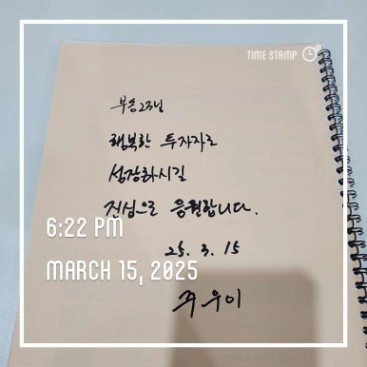 TIME STAMP
행복한 투자자로
성장하시길
진심으로 응원합니다.
6:22 PM
25. 3. 15
MARCH 15, 2025
주우이